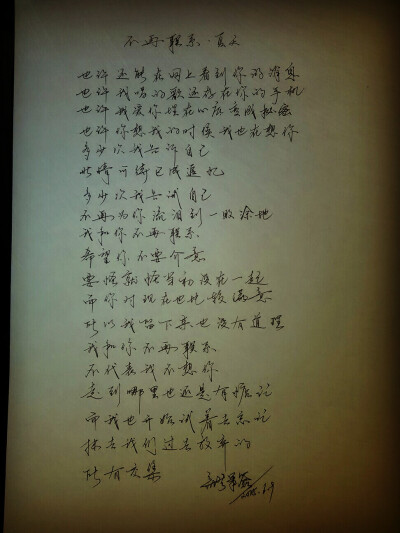 不再联系·夏天
也许还能在网上看到你的消息
也许我唱的歌还存在你的手机
也许我爱你埋在心底变成秘密
也许你想我的时候我也在想你
多少次我告诉自己
此情可待已成追忆
多少次我告诫自己
不再为你流泪到一败涂地
我和你不再联系
希望你不要介意
要怪就怪当初没在一起
而你对现在也比较满意
所以我留下来也没有道理
我和你不再联系
不代表我不想你
走到哪里也还是有惦记
而我也开始试着去忘记
抹去我们过去放弃的
所有交集